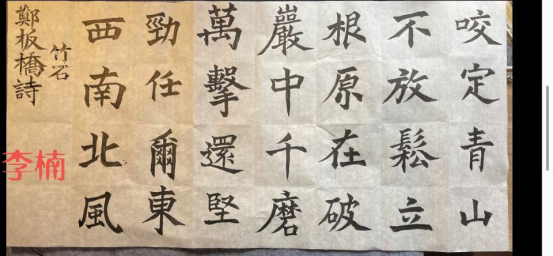 咬定青山
不放鬆立
根原在破
巖中千磨
萬擊還堅
勁任爾東
西南北風
竹石
鄭板橋詩
李楠